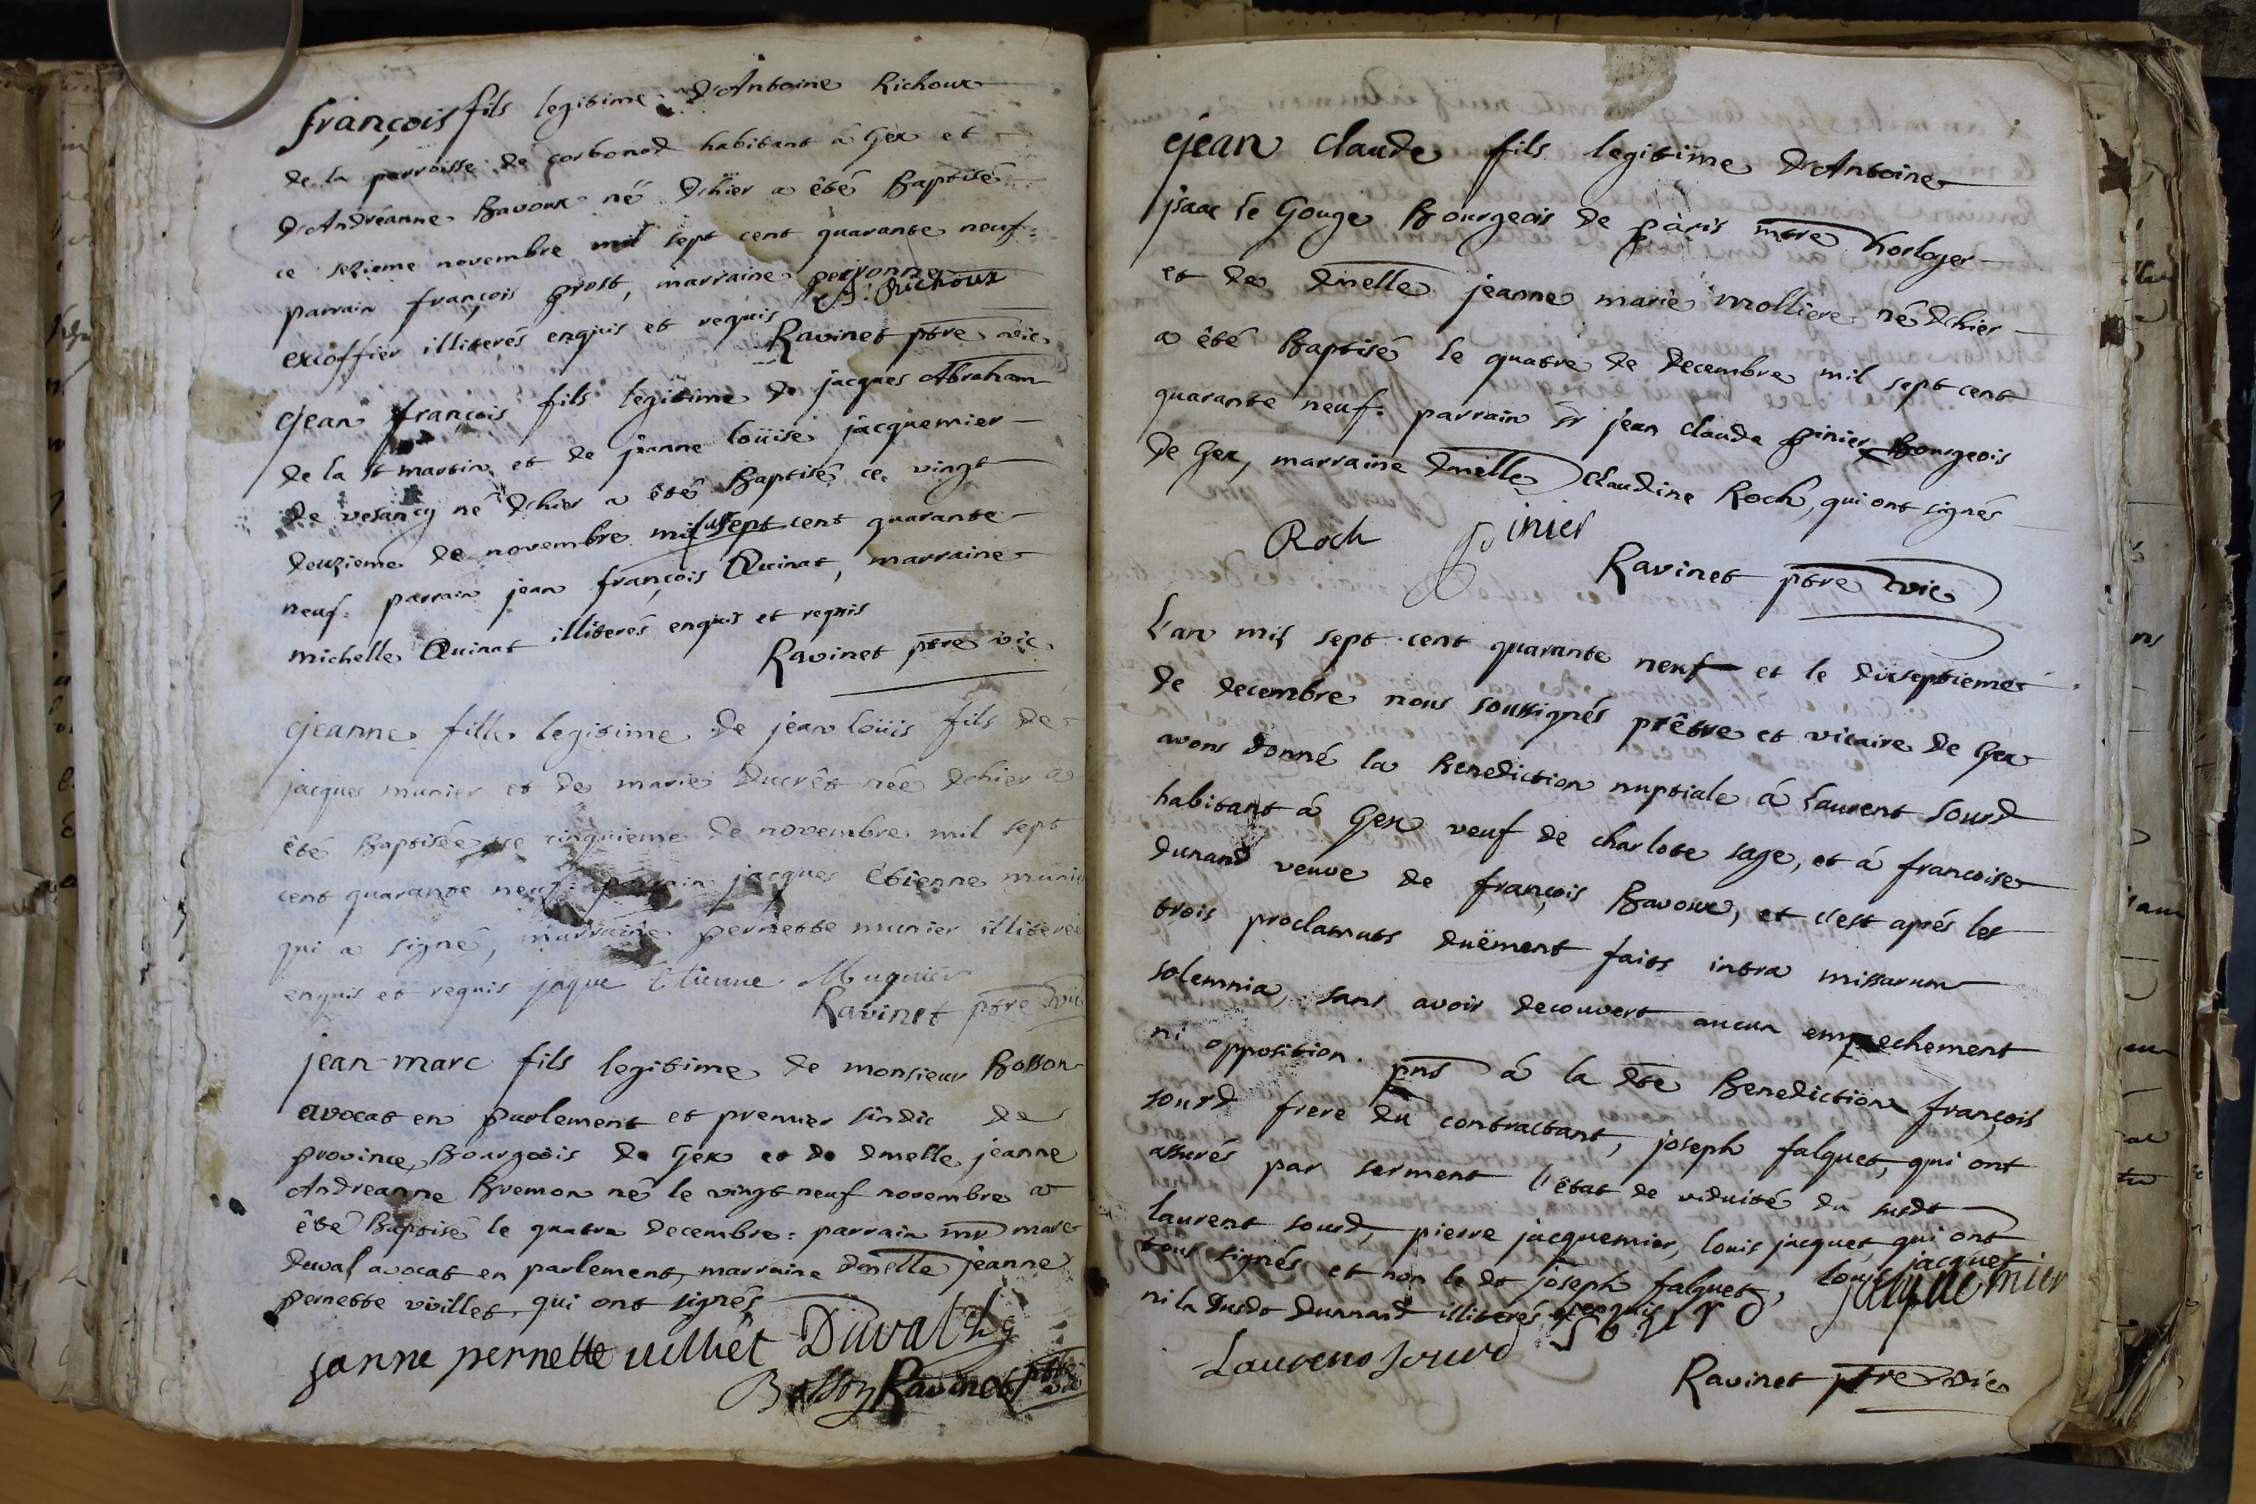 françois fils legitime d'Antoine Richoux
de la parroisse de corbonod habitant à Gex et
d'Andréanne Bavoux né d'hier a êté Baptisé
ce seizieme novembre mil sept cent quarante neuf:
parrain françois prost, marraine perronne
excoffier illiterés enquis et requis A: Richoux
Ravinet ptre vic
Jean françois fils legitime de jacques Abraham
de la st martin et de jeanne loüise jacquemier
de vesancy né d'hier a êté Baptisé ce vingt
deuzieme de novembre mil sept cent quarante
neuf: parrain jean françois Quinat, marraine
michelle Quinat illiterés enquis et requis
Ravinet ptre vic
Jeanne fille legitime de jean loüis fils de
jacques munier et de marie Ducrêt née d'hier a
êté Baptisée ce cinquieme de novembre mil sept
cent quarante neuf: parrain jacques êtienne munier
qui a signé, marraine pernette munier illiterée
enquis et requis jaque Etienne Mugnier
Ravinet ptre vic
jean-marc fils legitime de monsieur Bosson
avocat en parlement et premier sindic de
province, Bourgeois de Gex et de dmelle jeanne
Andreanne Bremon né le vingt neuf novembre a
êté Baptisé le quatre decembre: parrain mr marc
duval avocat en parlement, marraine dmelle jeanne
pernette vüillet, qui ont signés
janne pernette vulliet Duval
Bosson Ravinet ptre vic
Jean claude fils legitime d'Antoine
jsaac le Gouge Bourgeois de paris mtre horloger
et de dmelle jeanne marie molliere né d'hier
a êté Baptisé le quatre de decembre mil sept cent
quarante neuf. parrain sr jean claude pinier Bourgeois
de Gex, marraine dmelle Claudine Roch, qui ont signés
Roch pinier
Ravinet ptre vic
L'an mil sept cent quarante neuf et le dixseptieme
de decembre nous soussignés prêtre et vicaire de Gex
avons donné la Benediction nuptiale à laurent sourd
habitant à Gex veuf de charlote sage, et à francoise
dunand veuve de françois Bavoux, et c'est aprés les
trois proclamats duëment faits intra missarum
solemnia, sans avoir decouvert aucun empechement
ni opposition. pns à la dte Benediction françois
sourd frere du contractant, joseph falquet, qui ont
assurés par serment l'êtat de viduité du susdt
laurent sourd, pierre jacquemier, louis jacquet, qui ont
tous signés et non le dt joseph falquet, louis jacquet
ni la susdt dunand illiterés enquis sourd jacquemier
Laurens sourd
Ravinet ptre vic